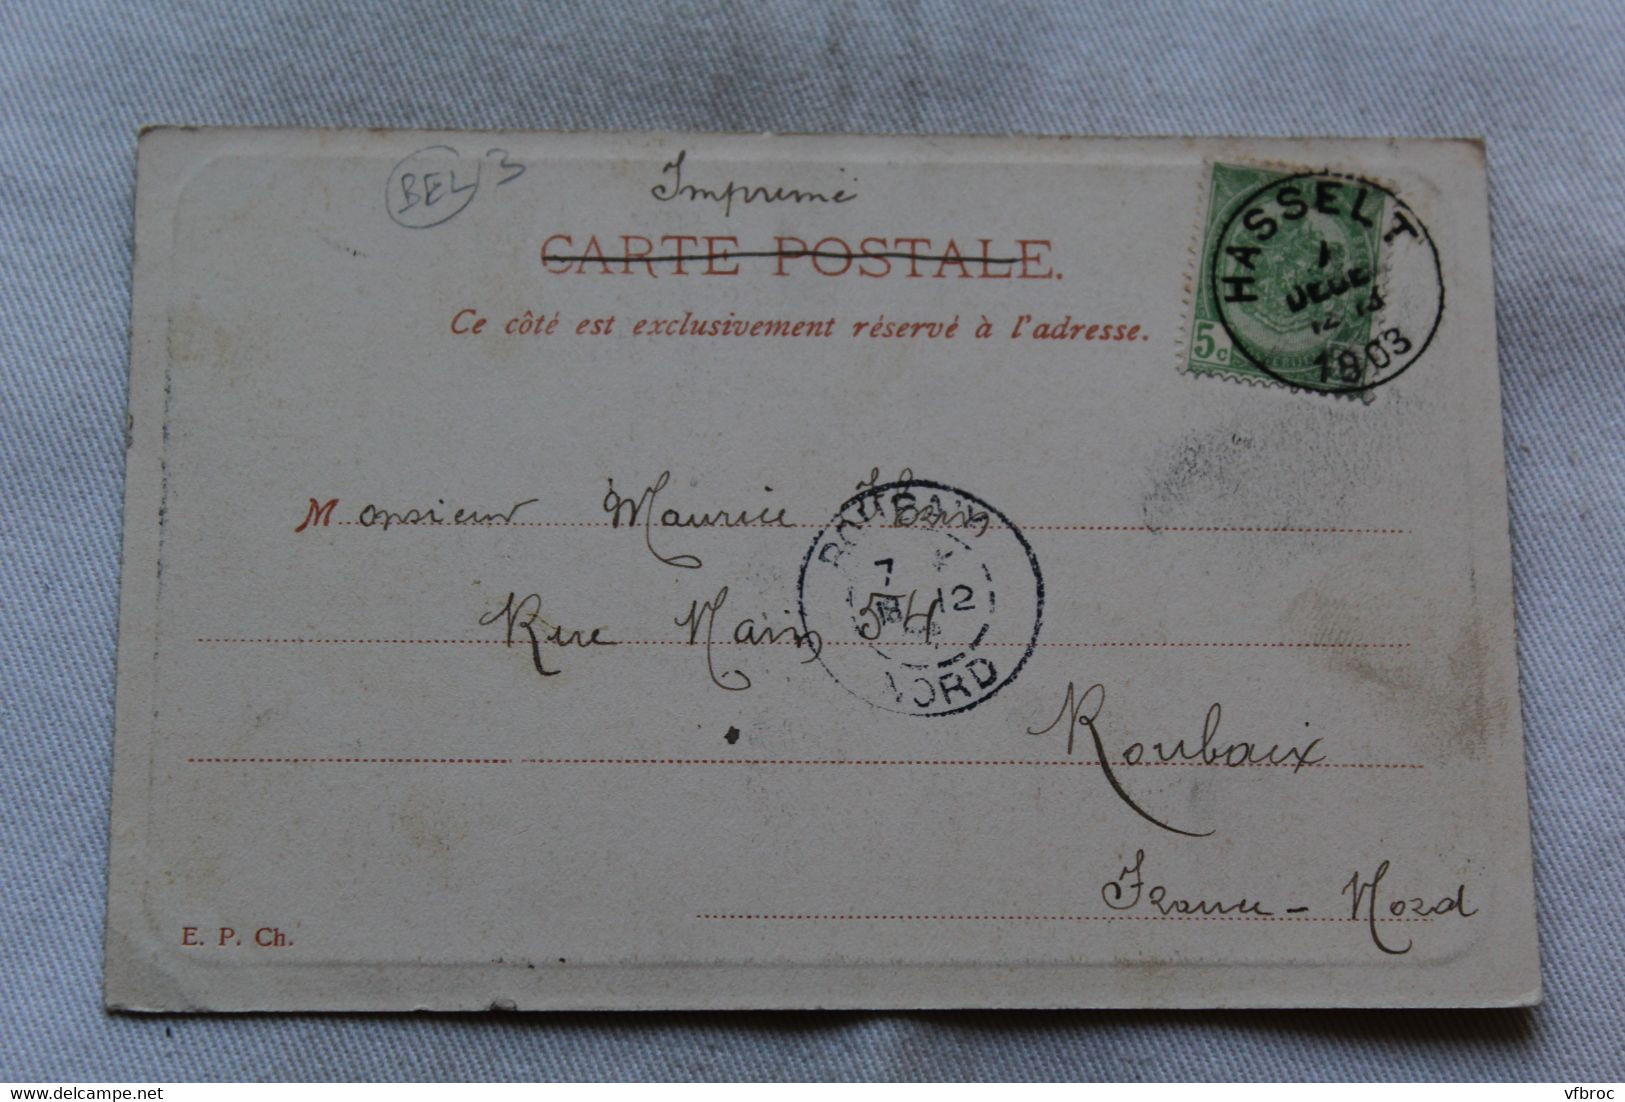 BEL 3
Imprimé
CARTE POSTALE.
Ce côté est exclusivement réservé à l'adresse.
HASSELT
1
DECE
12 14
1903
5c
Monsieur Maurice
ROUBAIX
7
12
NORD
Rue Nain 54
Roubaix
France - Nord
E. P. Ch.
vfbroc